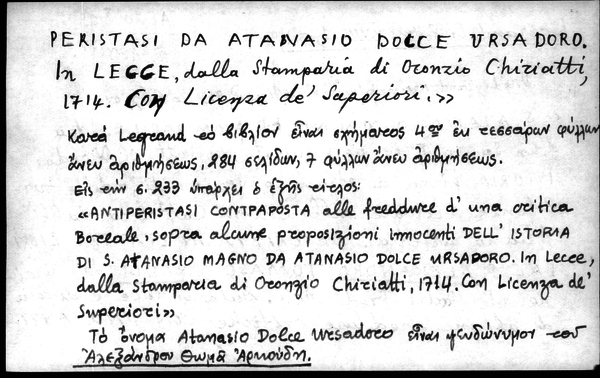 PERISTASI DA ATANASIO DOLCE URSADORO.
In LEGGE, dalla Stamparia di Oronzio Chiriatti,
1714. Con Licenza de' Superiori.»
Κατά Legrand τό βιβλίον εἶναι σχήματος 4ου ἐκ τεσσάρων φύλλων
ἄνευ ἀριθμήσεως, 284 σελίδων, 7 φύλλων ἄνευ ἀριθμήσεως.
Εἰς τήν σ. 233 ὑπάρχει ὁ ἑξῆς τίτλος:
«ANTIPERISTASI CONTRAPOSTA alle freddure d' una critica
Boreale, sopra alcune proposizioni innocenti DELL' ISTORIA
DI S. ATANASIO MAGNO DA ATANASIO DOLCE URSADORO. In Lecce,
dalla Stamparia di Oronzio Chiriatti, 1714. Con Licenza de'
Superiori»
Τό ὄνομα Atanasio Dolce Ursadoro εἶναι ψευδώνυμον τοῦ
Ἀλεξάνδρου Θωμᾶ Ἀρκούδη.